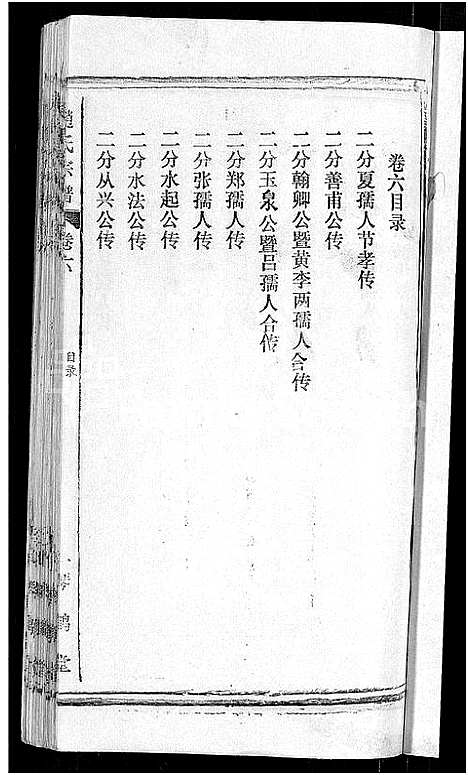 卷六目录
二分夏孺人节孝传
二分善甫公传
二分翰卿公暨黄李两孺人合传
二分玉泉公暨吕孺人合传
二分郑孺人传
二分张孺人传
二分水起公传
二分水法公传
二分从兴公传
赵氏宗谱
卷六
目录
琴鹤堂